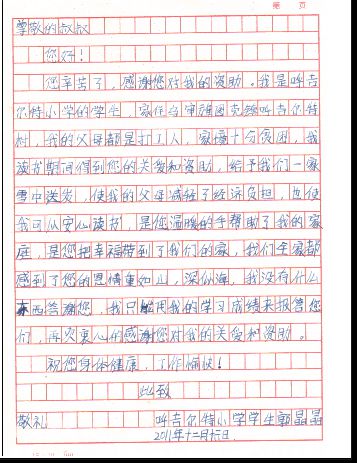 第 页
尊敬的叔叔
您好！
您辛苦了，感谢您对我的资助。我是呼吉
尔特小学的学生，家住乌审旗图克镇呼吉尔特
村，我的父母都是打工人，家境十分贫困，我
读书期间得到您的关爱和资助，给予我们一家
雪中送炭，使我的父母减轻了经济负担，也使
我可以安心读书，是您温暖的手帮助了我的家
庭，是您把幸福带到了我们的家，我们全家都
感到了您的恩情重如山，深似海，我没有什么
东西答谢您，我只能用我的学习成绩来报答您
们，再次衷心的感谢您对我的关爱和资助。
祝您身体健康，工作愉快！
此致
敬礼 呼吉尔特小学学生郭晶晶
2011年十二月 日